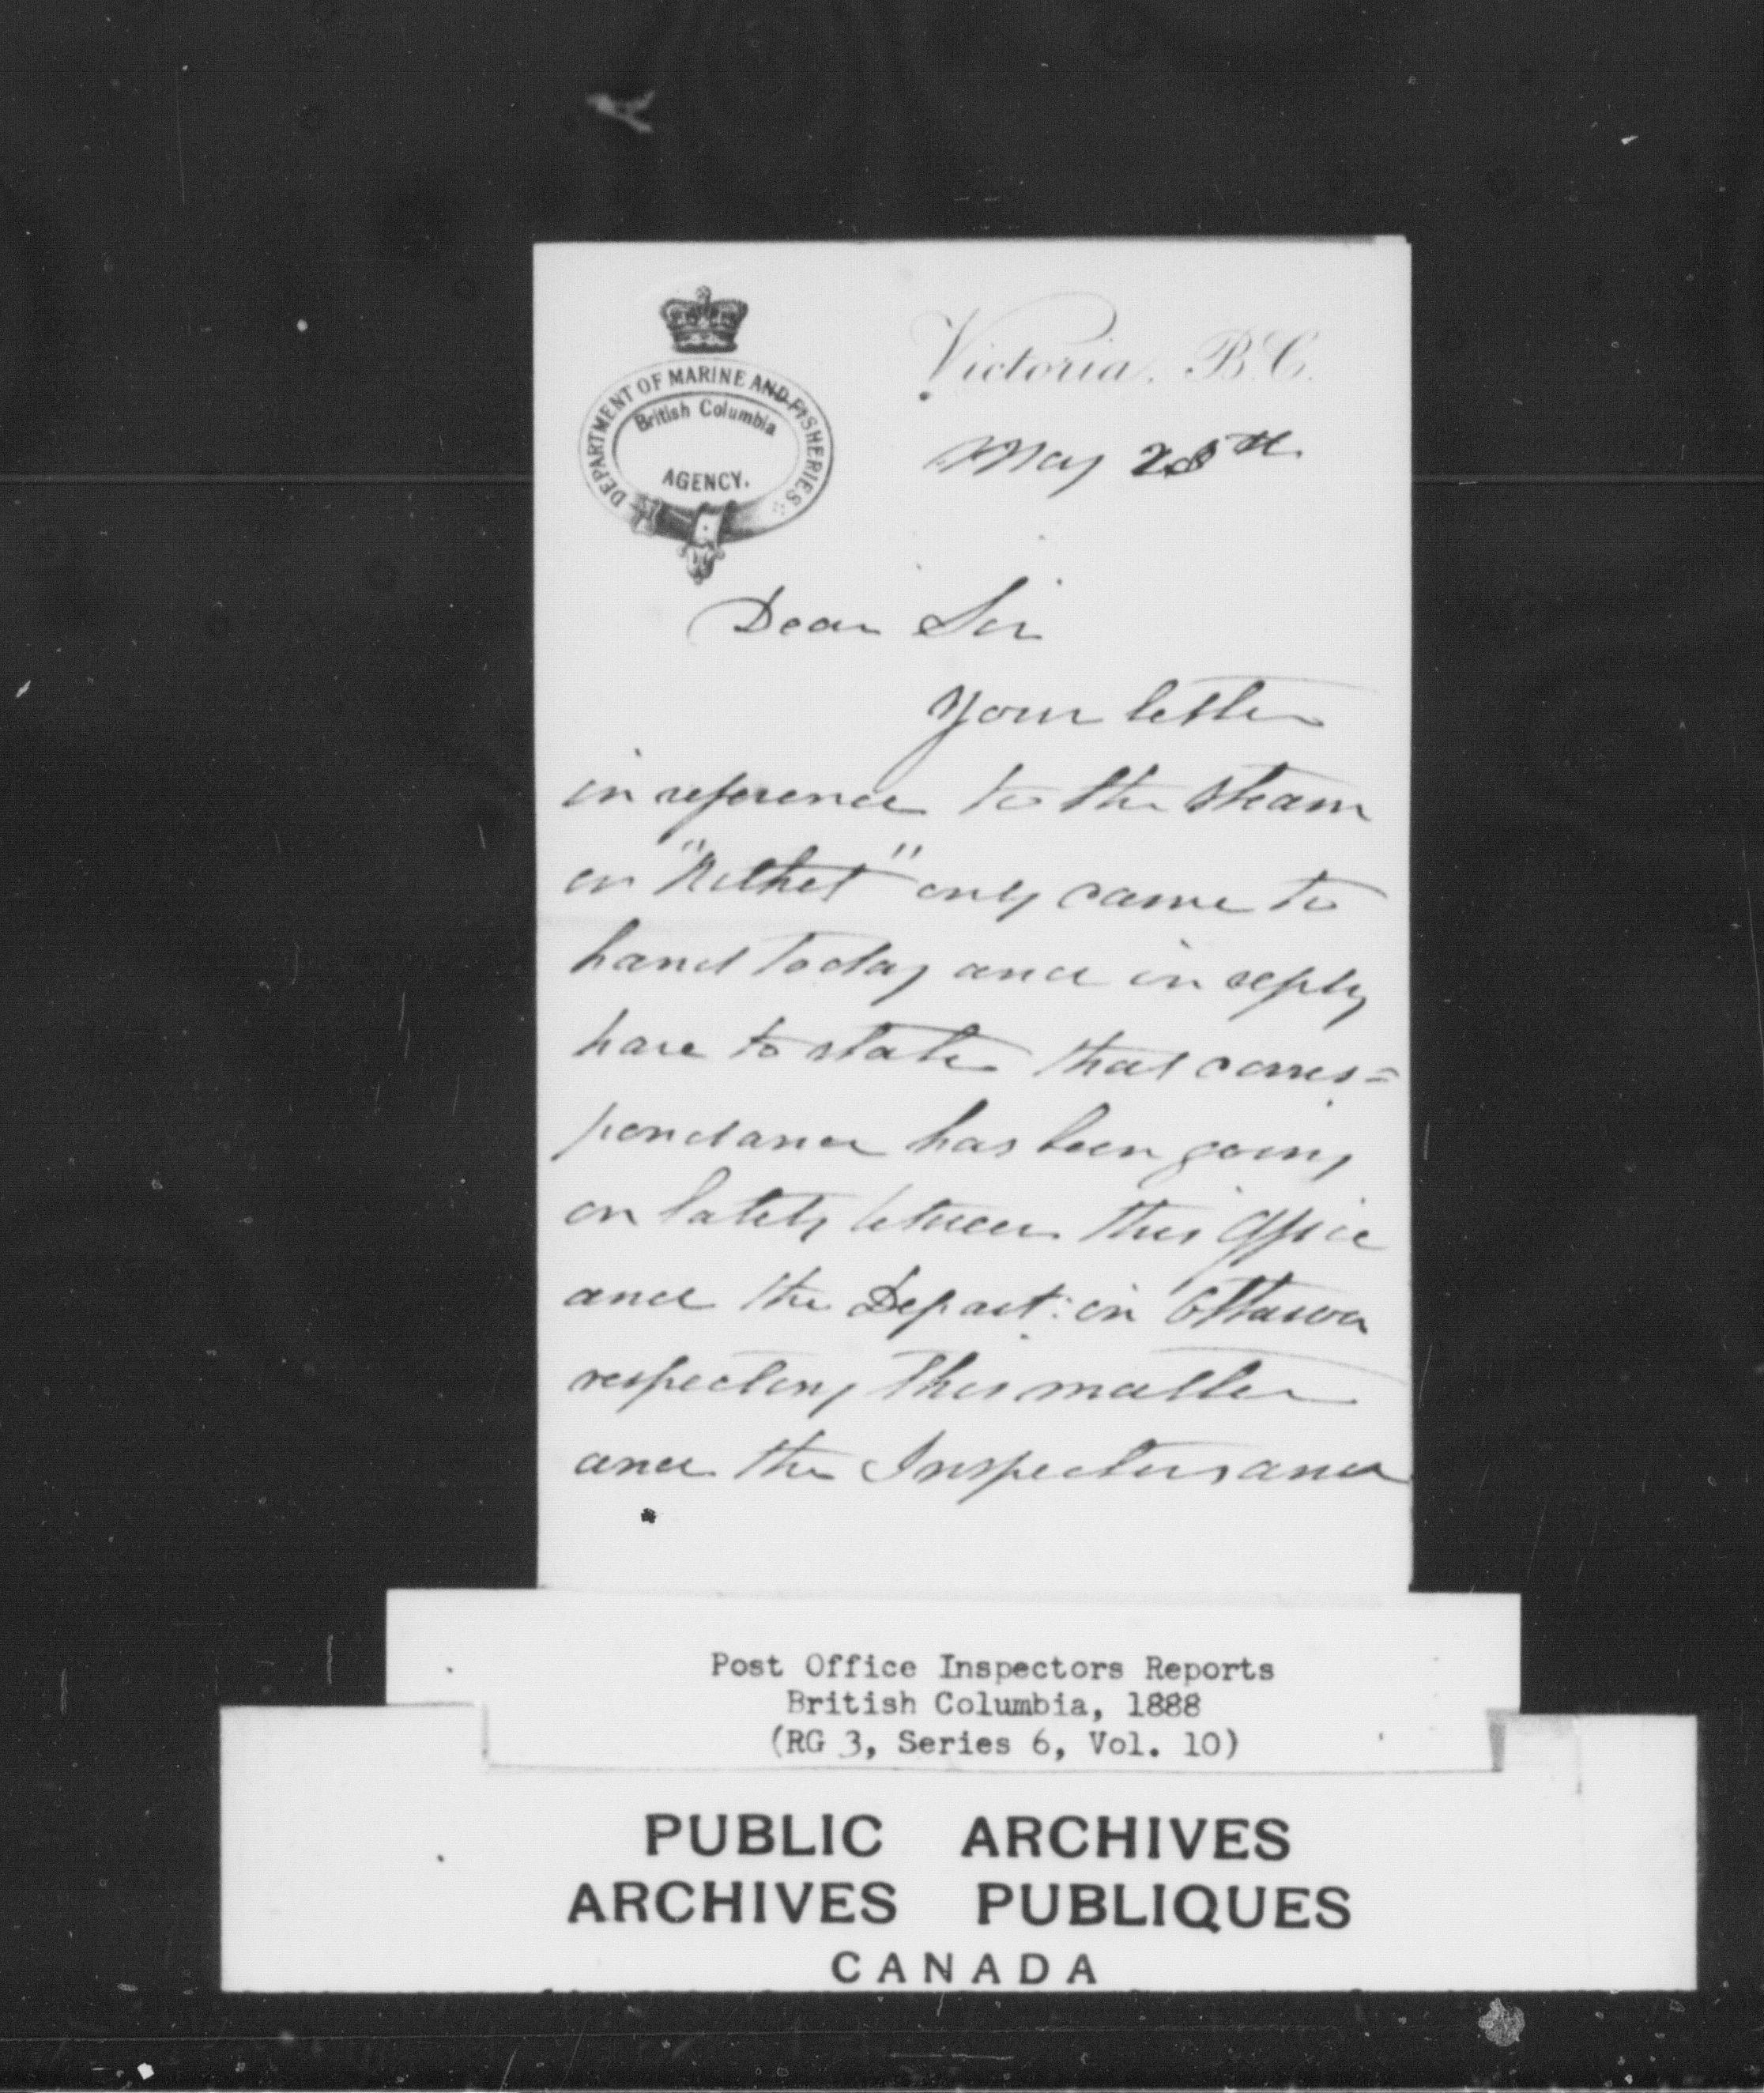 DEPARTMENT OF MARINE AND FISHERIES
British Columbia
AGENCY.
Victoria, B.C.
May 28th
Dear Sir
Your letter
in reference to the steam
er "Rithet" only came to
hand today and in reply
have to state that corres=
pondance has been going
on lately between this Office
and the Depart: in Ottawa
respecting this matter
and the Inspectors and
Post Office Inspectors Reports
British Columbia, 1888
(RG 3, Series 6, Vol. 10)
PUBLIC ARCHIVES
ARCHIVES PUBLIQUES
CANADA